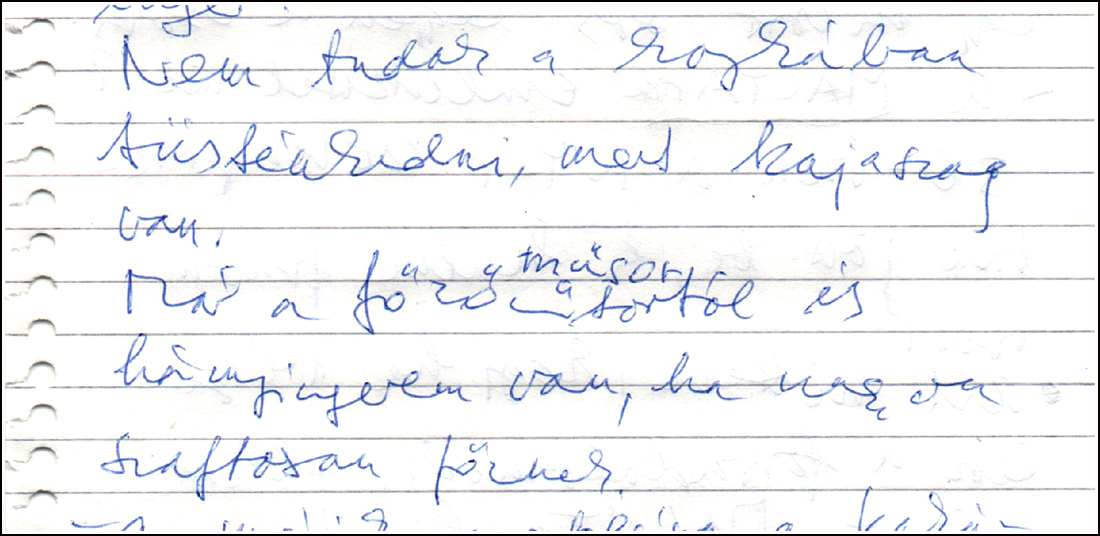 Nem tudok a konyhában
tüsténkedni, mert kajaszag
van.
Már a főzőműsortól is
hányingerem van, ha nagyon
szaftosan főznek.